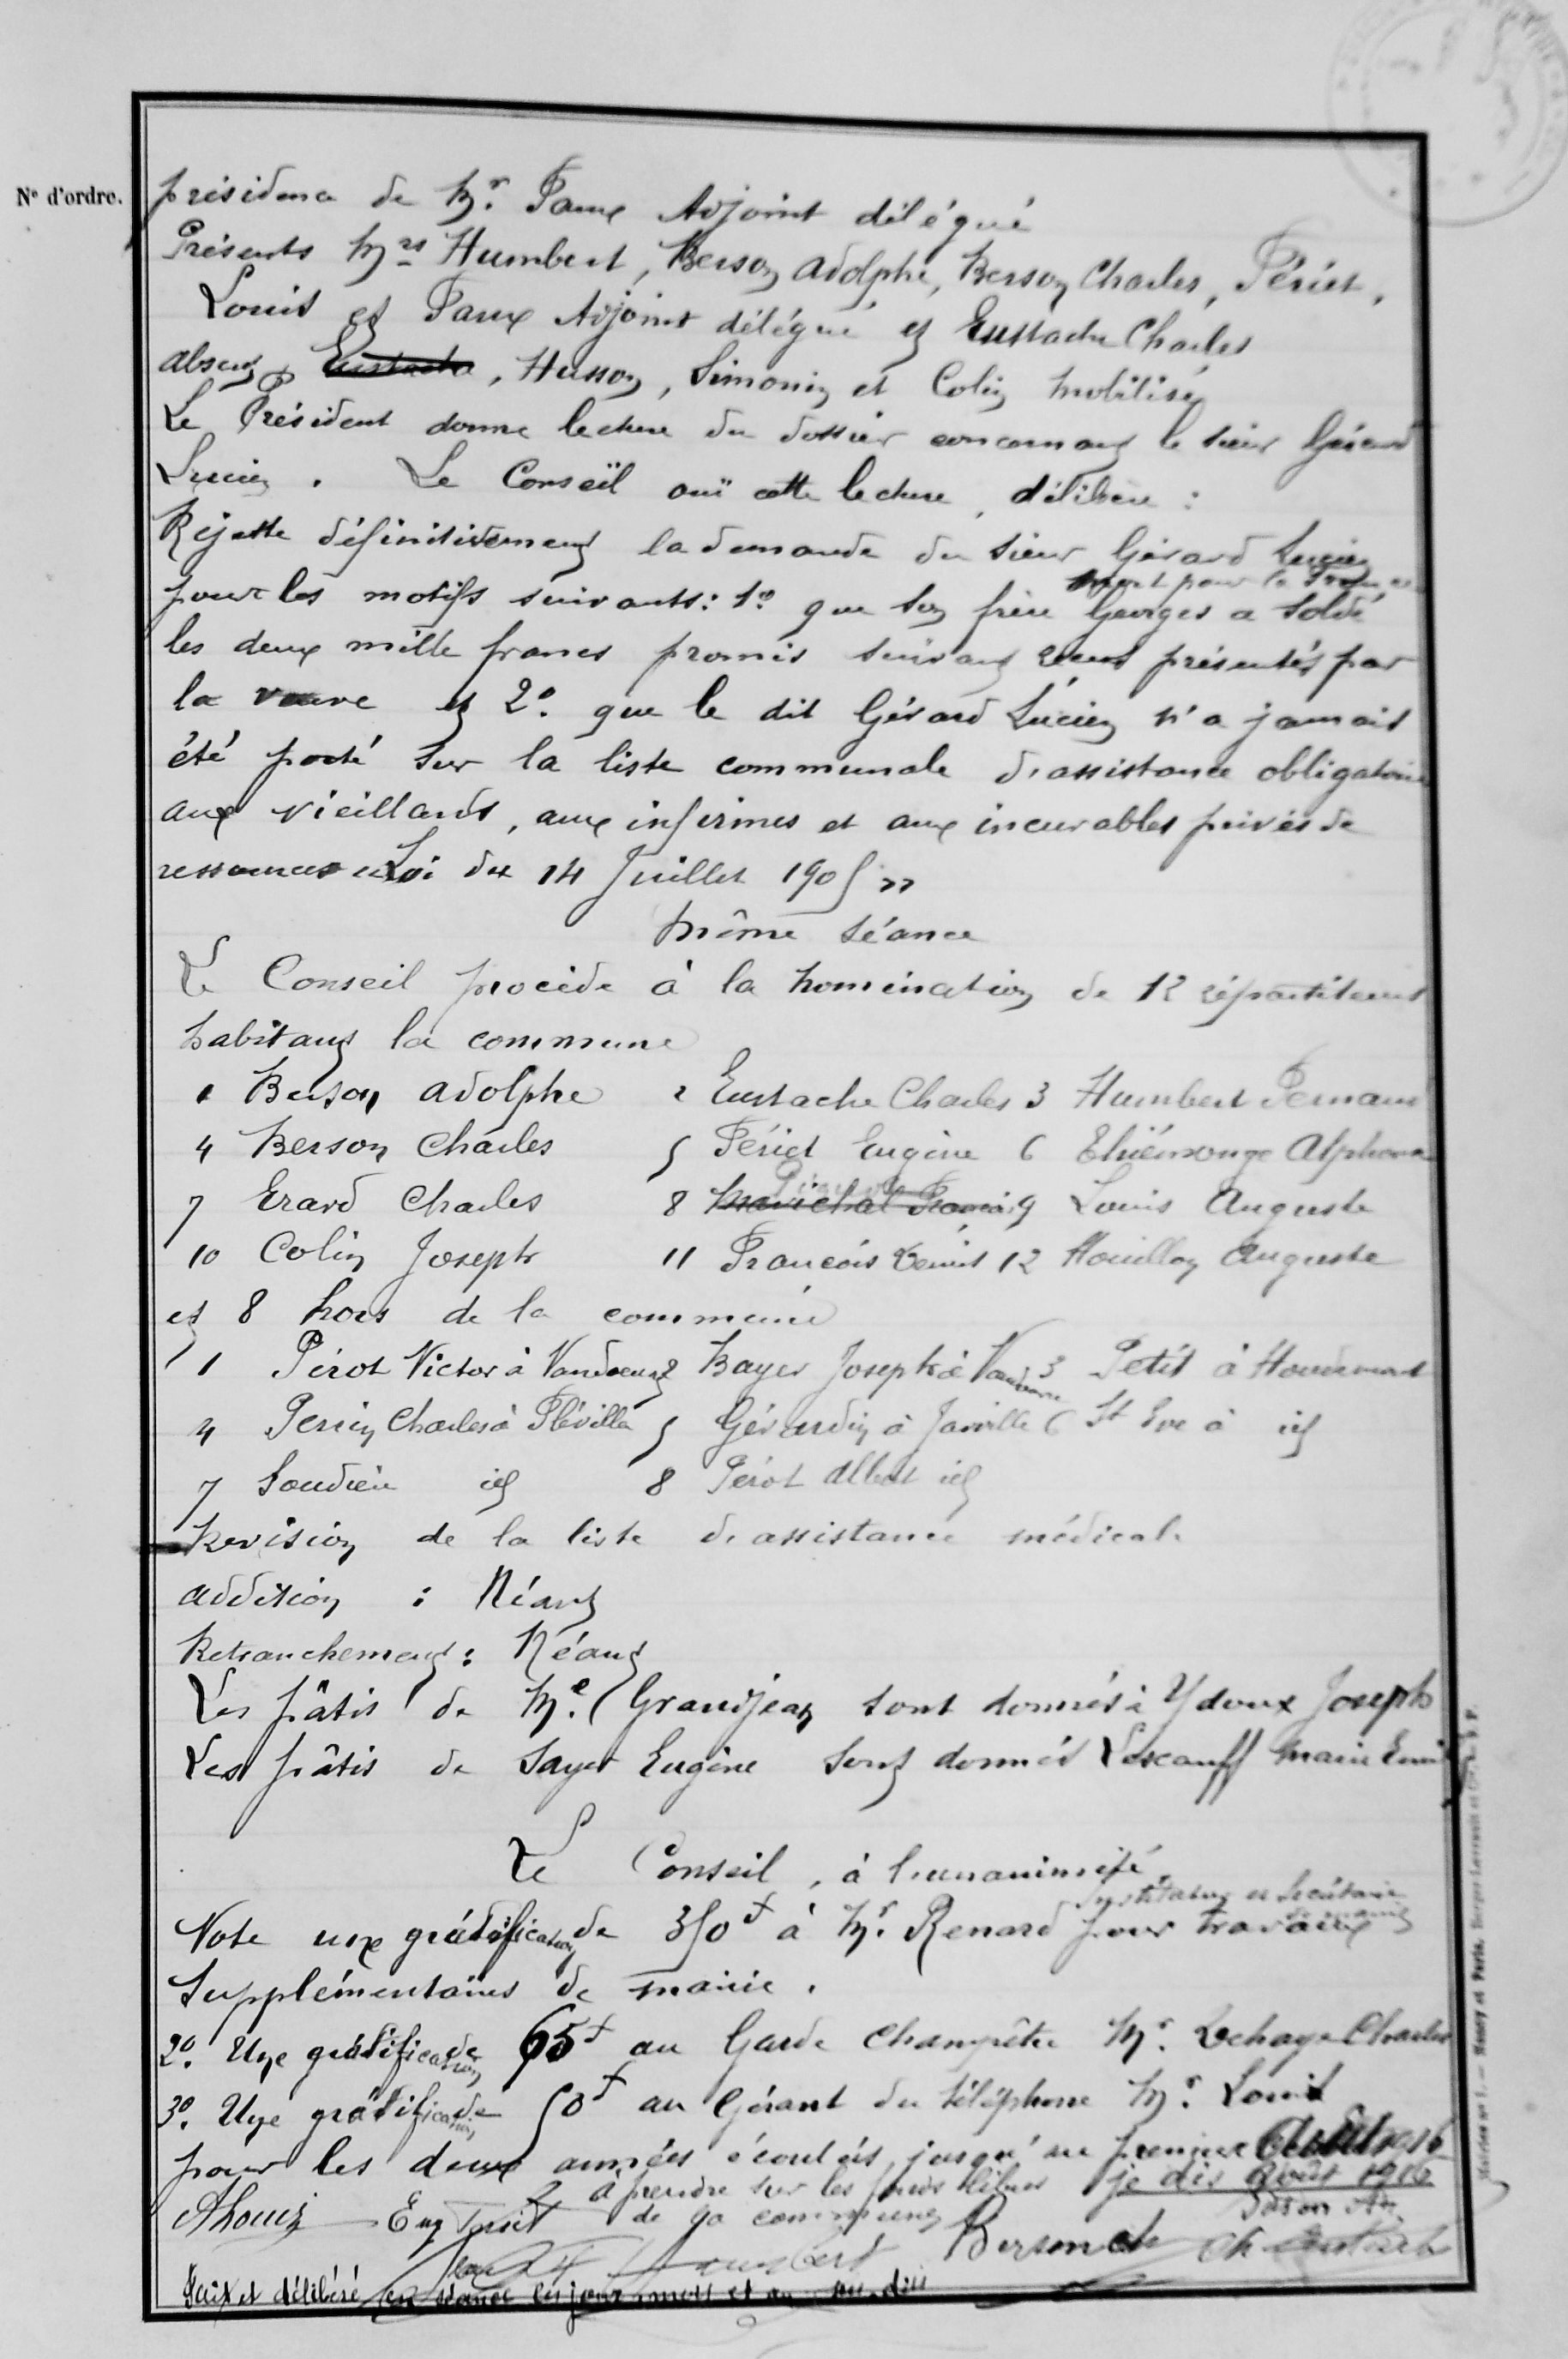 N° d'ordre.
présidence de Mr. Paux Adjoint délégué
Présents Mrs Humbert, Berson Adolphe, Berson Charles, Périet,
Louis et Paux Adjoint délégué et Eustache Charles
absents Eustache, Husson, Simonin et Colin mobilisés
Le Président donne lecture du dossier concernant le sieur Gérard
Lucien. Le Conseil ouï cette lecture, délibère :
Rejette définitivement la demande du sieur Gérard Lucien
mort pour la France
pour les motifs suivants : 1° que son frère Georges a soldé
les deux mille francs promis suivant reçus présentés par
la veuve et 2° que le dit Gérard Lucien n'a jamais
été porté sur la liste communale d'assistance obligatoire
aux vieillards, aux infirmes et aux incurables privés de
ressources "Loi du 14 Juillet 1905"
Même séance
Le Conseil procède à la nomination de 12 répartiteurs
habitant la commune
1 Berson Adolphe 2 Eustache Charles 3 Humbert Fernand
4 Berson Charles 5 Périet Eugène 6 Thiémonge Alphonse
7 Erard Charles 8 Maréchal François 9 Louis Auguste
10 Colin Joseph 11 François Denis 12 Houillon Auguste
et 8 hors de la commune
1 Pérot Victor à Vandoeuvre 2 Bayer Joseph à Vandoeuvre 3 Petit à Houdemont
4 Perrin Charles à Fléville 5 Gérardin à Jarville 6 St Eve à id
7 Soudière id 8 Pérot Albert id
Revision de la liste d'assistance médicale
addition : Néant
Retranchement : Néant
Les pâtis de Me. Grandjean sont donnés à Ydoux Joseph
Les pâtis de Sayer Eugène sont donnés Lescauff Marie
Le Conseil, à l'unanimité
Instituteur et Secrétaire de mairie
Vote une gratification de 350f à Mr. Renard pour travaux
supplémentaires de mairie.
2°. Une gratification de 65f au Garde Champêtre Mr. Dehaye Charles
3°. Une gratification de 50f au Gérant du téléphone Mr. Louis
pour les deux années écoulées jusqu'au premier
à prendre sur les fonds libres je dis Août 1916
de la commune
ALouis Eug Périet Humbert Berson ch Ch Eustache
Fait et délibéré en séance les jour, mois et an susdits